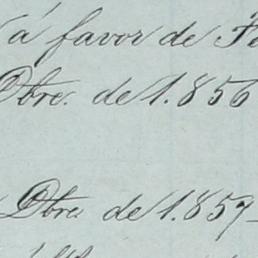 á favor de
Dbre. de 1.856
Dbre de 1.857